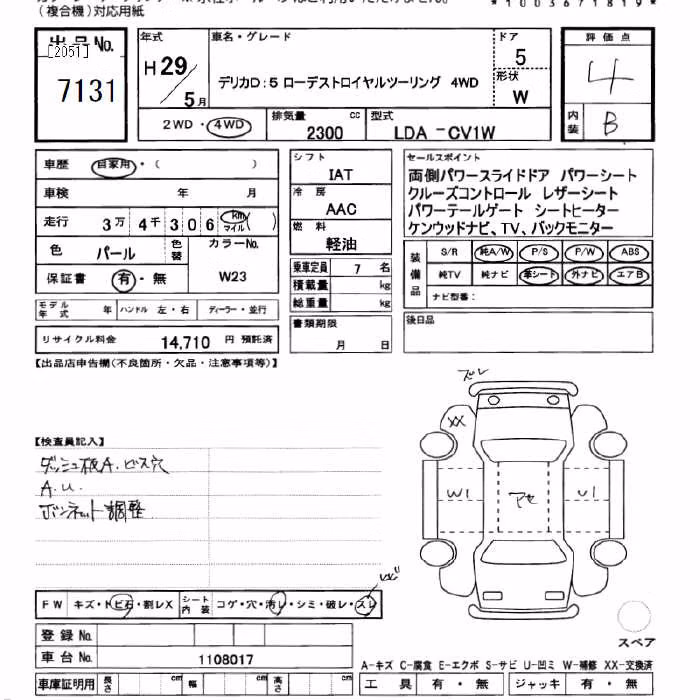 （複合機）対応用紙
*1003671819*
出品No.
[2051]
7131
年式
H29/5月
車名・グレード
デリカD：5 ローデストロイヤルツーリング 4WD
ドア
5
形状
W
2WD・4WD
排気量 2300 cc
型式 LDA-CV1W
評価点
4
内装 B
車歴 自家用・（ ）
車検 年 月
走行 3万4千306 km マイル ( )
色 パール 色替
カラーNo.
W23
保証書 有・無
モデル年式 年 ハンドル 左・右 ディーラー・並行
リサイクル料金 14,710 円 預託済
シフト
IAT
冷房
AAC
燃料
軽油
乗車定員 7 名
積載量 kg
総重量 kg
書類期限
月 日
セールスポイント
両側パワースライドドア パワーシート
クルーズコントロール レザーシート
パワーテールゲート シートヒーター
ケンウッドナビ、TV、バックモニター
装備品
S/R 純A/W P/S P/W ABS
純TV 純ナビ 革シート 外ナビ エアB
ナビ型番：
後日品
【出品店申告欄（不良箇所・欠品・注意事項等）】
【検査員記入】
ダッシュ板A. ビス穴
A.U.
ボンネット調整
ズレ
XX
W1
アセ
U1
FW キズ・トビ石・割レX
シート内装 コゲ・穴・汚レ・シミ・破レ・スレ
登録No.
車台No. 1108017
車庫証明用 長さ cm 幅 cm 高さ cm
スペア
A-キズ C-腐食 E-エクボ S-サビ U-凹ミ W-補修 XX-交換済
工具 有・無 ジャッキ 有・無